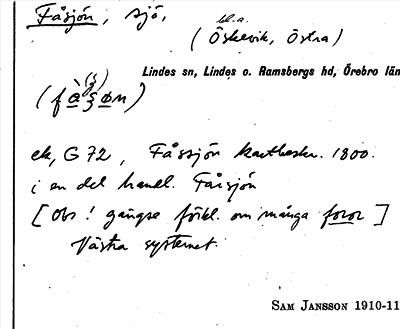 Fåsjön, sjö,
bl.a.
(Öskevik, Östra)
Lindes sn, Lindes o. Ramsbergs hd, Örebro län
ek, G 72, Fåssjön kartbeskr. 1800.
i en del handl. Fåisjön
[Obs! gängse förkl. om många foror]
Västra systemet.
SAM JANSSON 1910-11